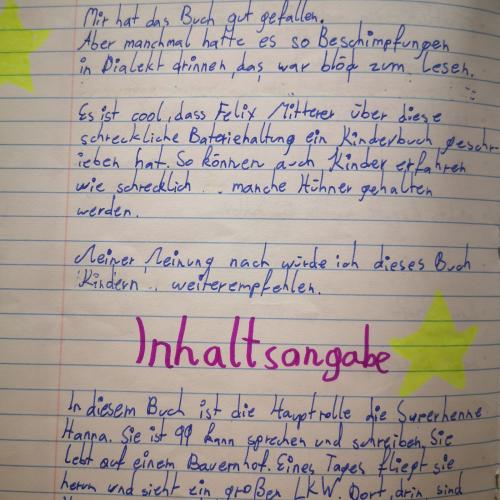 Mir hat das Buch gut gefallen.
Aber manchmal hatte es so Beschimpfungen
in Dialekt drinnen, das war blöd zum Lesen.
Es ist cool, dass Felix Mitterer über diese
schreckliche Bateriehaltung ein Kinderbuch geschr-
ieben hat. So können auch Kinder erfahren
wie schrecklich .. manche Hühner gehalten
werden.
Meiner Meinung nach würde ich dieses Buch
Kindern .. weiterempfehlen.
Inhaltsangabe
In diesem Buch ist die Hauptrolle die Superhenne
Hanna. Sie ist 99 kann sprechen und schreiben. Sie
lebt auf einem Bauernhof. Eines Tages fliegt sie
herum und sieht ein großen LKW. Dort drin sind